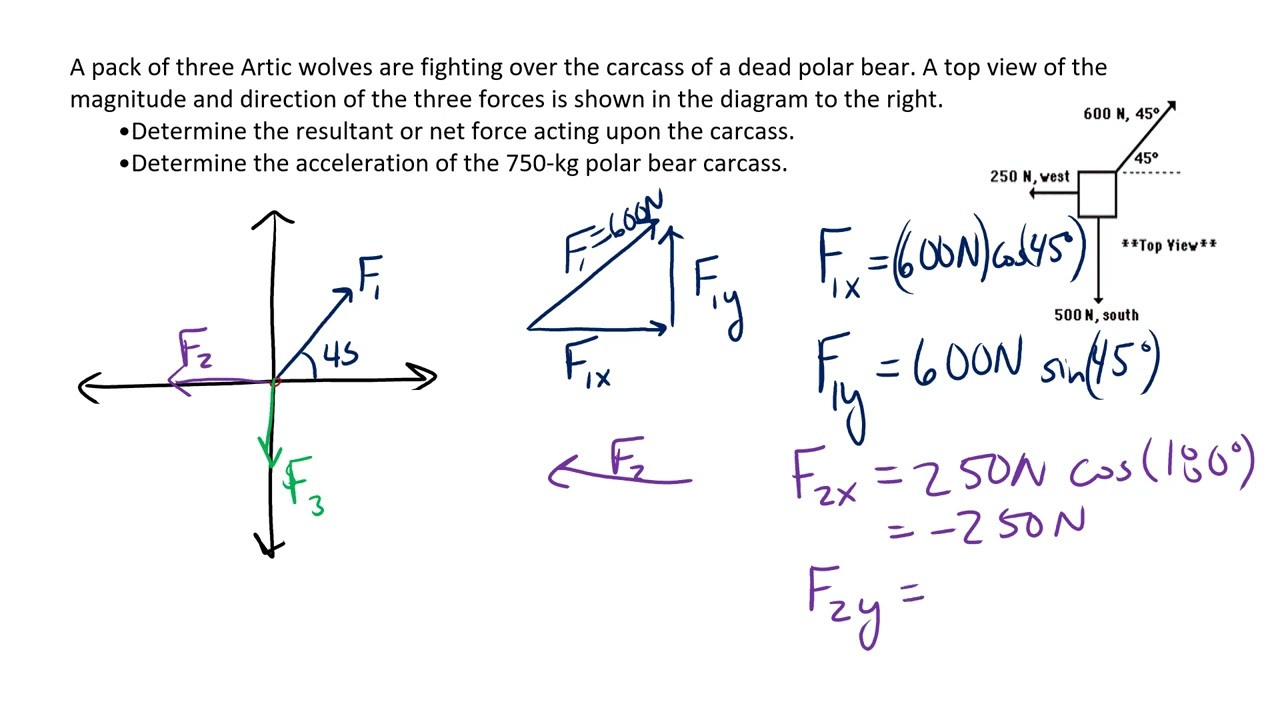 A pack of three Artic wolves are fighting over the carcass of a dead polar bear. A top view of the
magnitude and direction of the three forces is shown in the diagram to the right.
•Determine the resultant or net force acting upon the carcass.
•Determine the acceleration of the 750-kg polar bear carcass.
600 N, 45°
45°
250 N, west
**Top View**
500 N, south
F₁
45
F₂
F₃
F₁=600N
F₁y
F₁x
F₁x =(600N)cos(45°)
F₁y = 600N sin(45°)
F₂
F₂x = 250N cos(180°)
= -250N
F₂y =